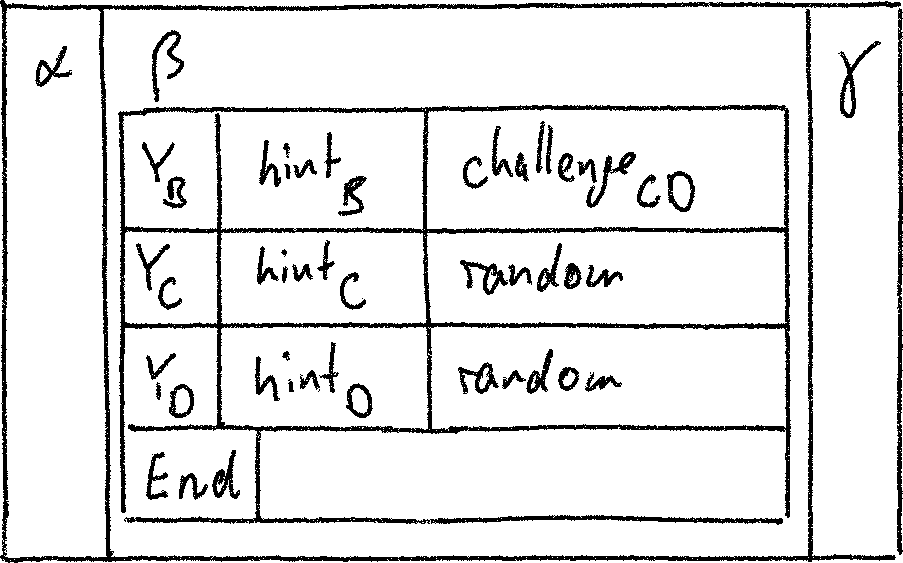 α β γ
Y_B hint_B challenge_CD
Y_C hint_C random
Y_D hint_D random
End